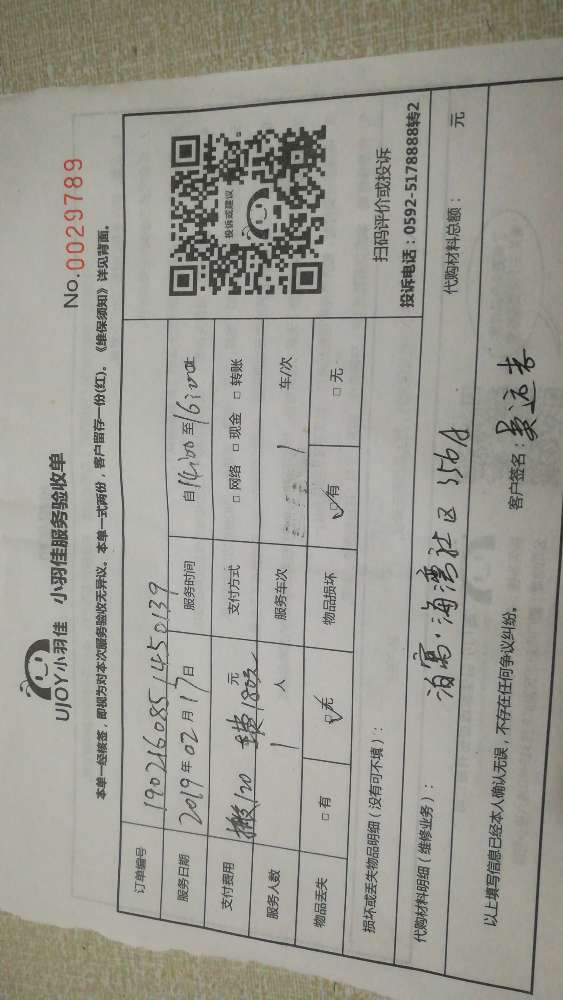 UJOY小羽佳 小羽佳服务验收单
No.0029789
本单一经核签，即视为对本次服务验收无异议。本单一式两份，客户留存一份(红)。《维保须知》详见背面。
订单编号 1902160851450139
服务日期 2019年02月17日 服务时间 自14:00至16:00止
支付费用 搬120 车费180 元 支付方式 □网络 □现金 □转账
服务人数 1 人 服务车次 1 车/次
物品丢失 □有 □无 物品损坏 □有 □无
投诉或建议
扫码评价或投诉
投诉电话：0592-5178888转2
损坏或丢失物品明细（没有可不填）：
代购材料明细（维修业务）： 泊寓·海湾社区 356A 代购材料总额： 元
以上填写信息已经本人确认无误，不存在任何争议纠纷。
客户签名：